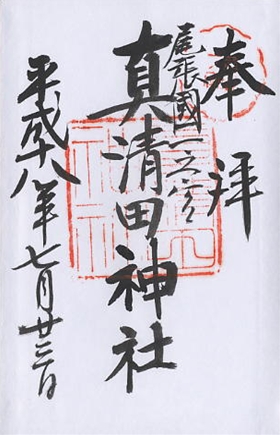 奉拝
尾張國一之宮
真清田神社
平成十八年七月廿三日